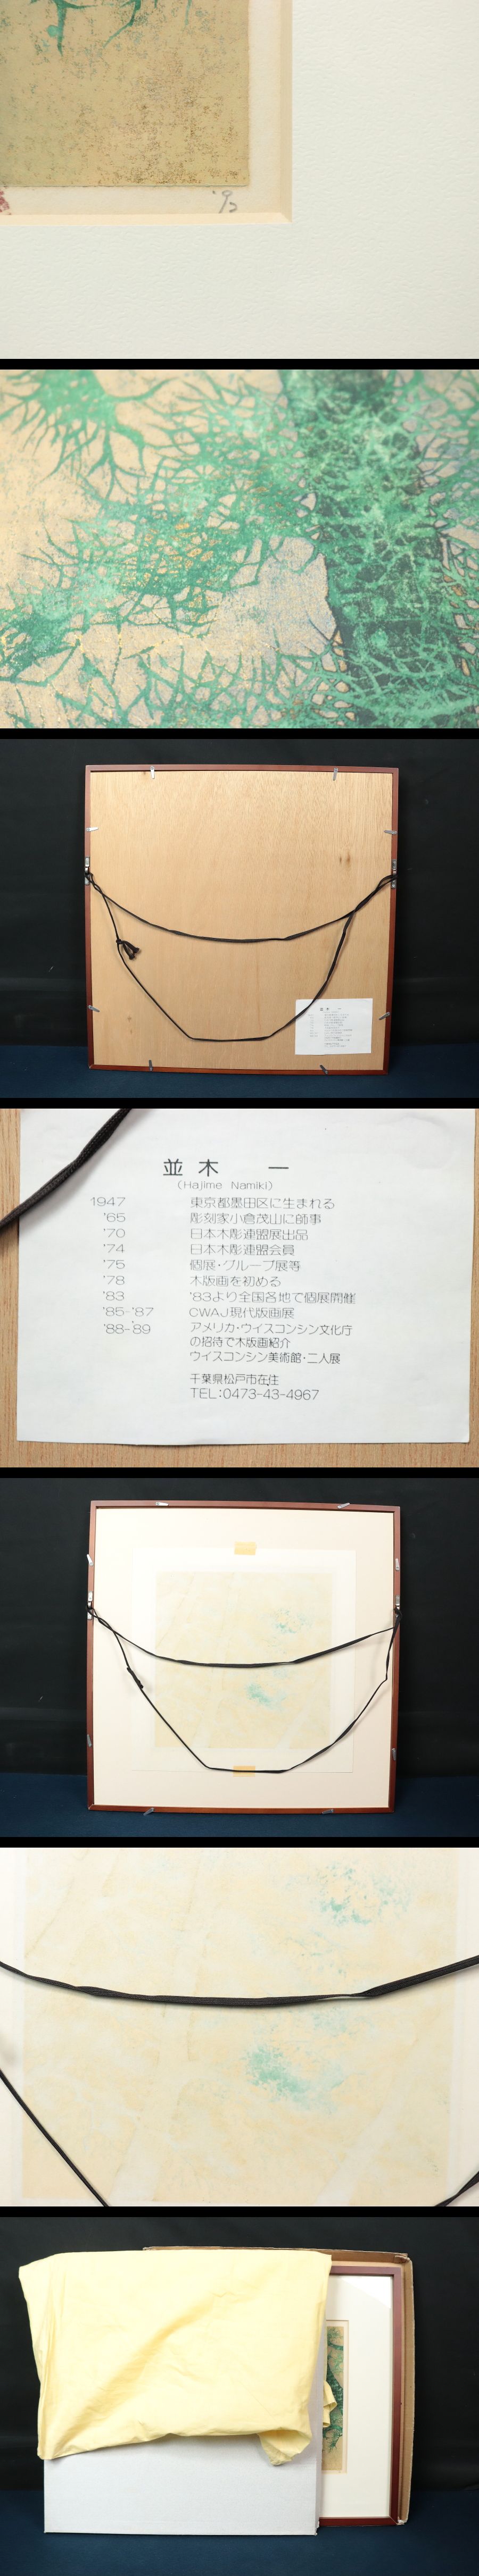 '92
並木 一
(Hajime Namiki)
1947 東京都墨田区に生まれる
'65 彫刻家小倉茂山に師事
'70 日本木彫連盟展出品
'74 日本木彫連盟会員
'75 個展・グループ展等
'78 木版画を初める
'83 '83より全国各地で個展開催
'85-'87 CWAJ現代版画展
'88-'89 アメリカ・ウイスコンシン文化庁
の招待で木版画紹介
ウイスコンシン美術館・二人展
千葉県松戸市在住
TEL:0473-43-4967